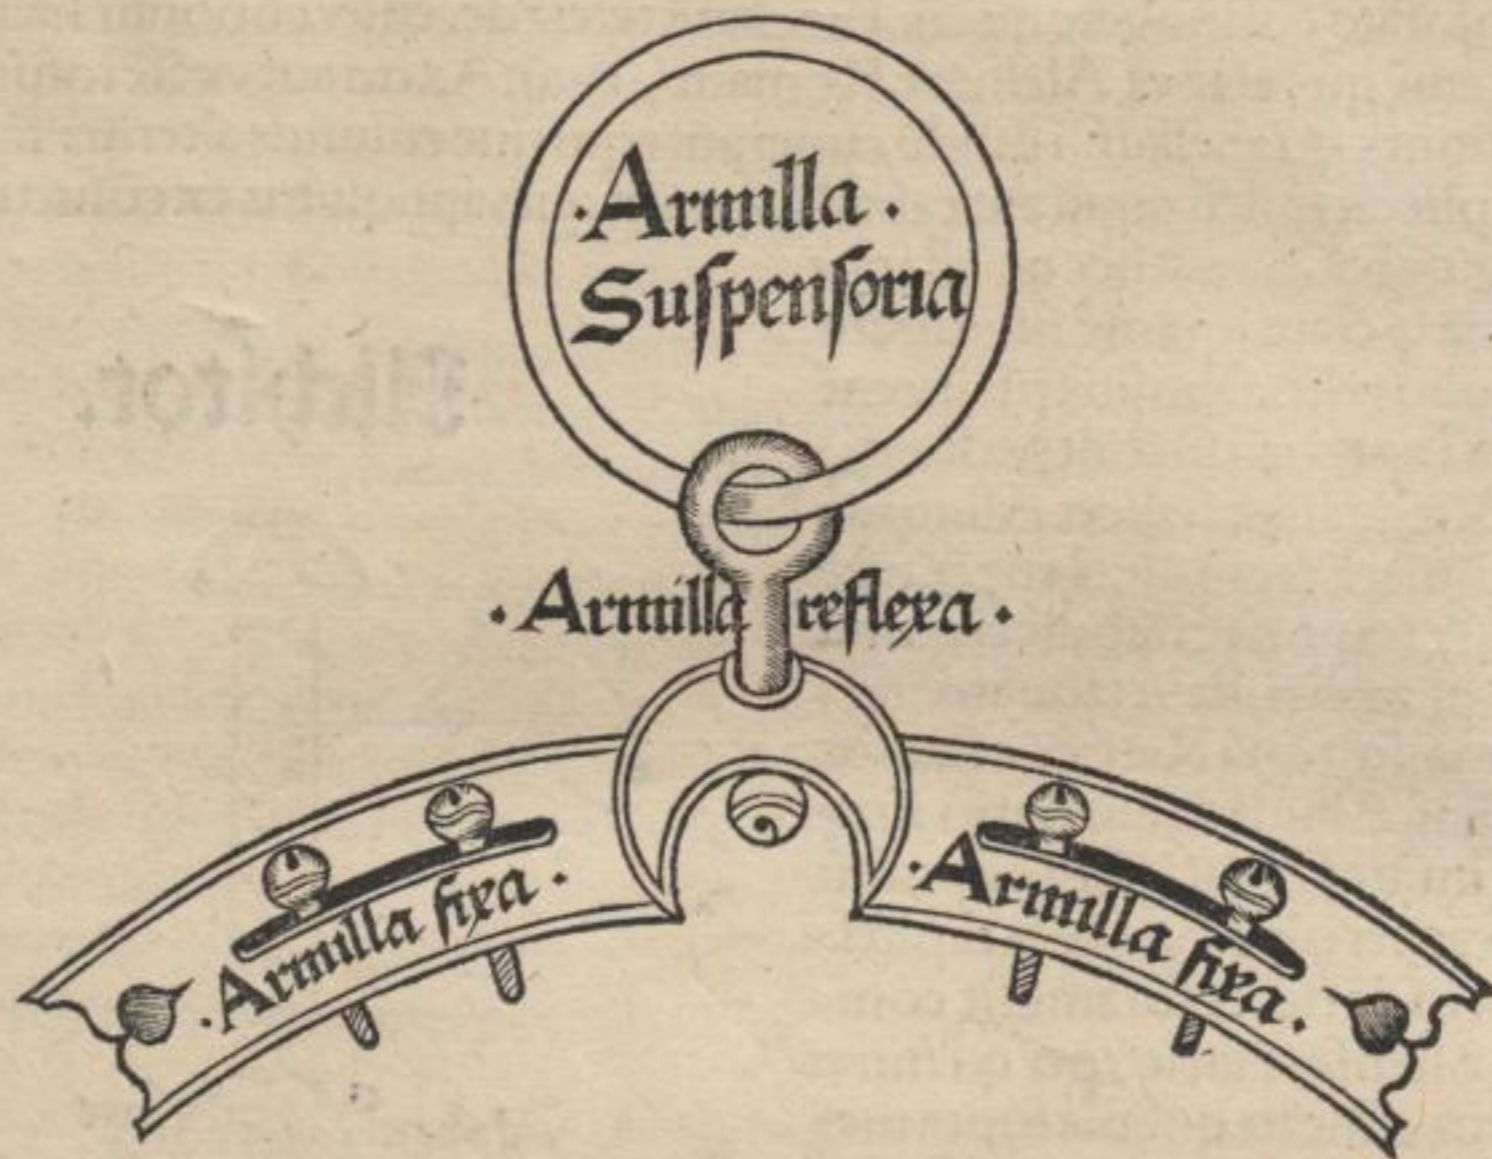 ·Armilla·
Suſpenſoria
·Armilla reflexa·
·Armilla fixa·
·Armilla fixa·